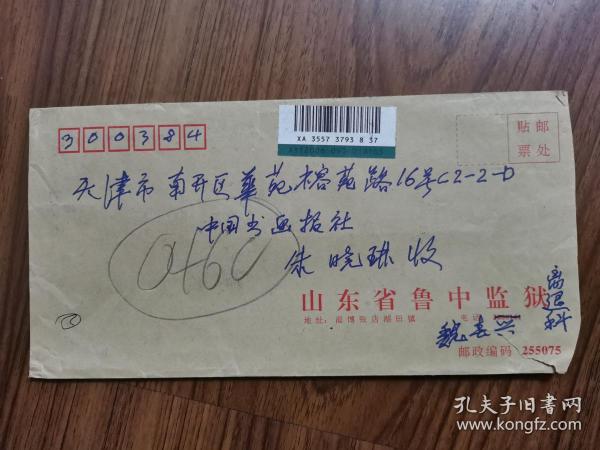 300384
XA 3557 3793 8 37
贴邮
票处
天津市南开区华苑榕苑路16号C2-2-D
中国书画报社
朱晓琳 收
0460
山东省鲁中监狱
离退科
地址:淄博张店湖田镇
电话
魏长兴
邮政编码 255075
孔夫子旧书网
www.kongfz.com